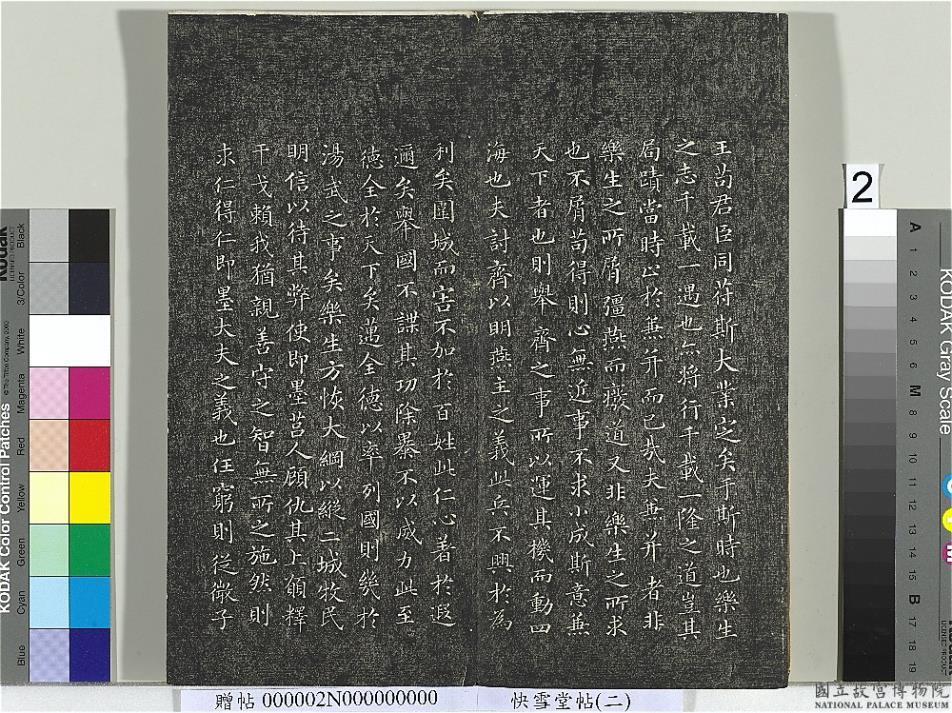 王苟君臣同符斯大業定矣于斯時也樂生
之志千載一遇也亦將行千載一隆之道豈其
局蹟當時止於兼并而已哉夫兼并者非
樂生之所屑彊燕而廢道又非樂生之所求
也不屑苟得則心無近事不求小成斯意兼
天下者也則舉齊之事所以運其機而動四
海也夫討齊以明燕主之義此兵不興於為
利矣圍城而害不加於百姓此仁心著於遐
邇矣舉國不謀其功除暴不以威力此至
德全於天下矣邁全德以率列國則幾於
湯武之事矣樂生方恢大綱以縱二城牧民
明信以待其弊使即墨莒人顧仇其上願釋
干戈賴我猶親善守之智無所之施然則
求仁得仁即墨大夫之義也任窮則從微子
Kodak
KODAK Color Control Patches
© The Tiffen Company, 2000
Blue
Cyan
Green
Yellow
Red
Magenta
White
3/Color
Black
2
KODAK Gray Scale
A
1
2
3
4
5
6
M
8
9
10
11
12
13
14
15
B
17
18
19
贈帖 000002N000000000
快雪堂帖(二)
國立故宮博物院
NATIONAL PALACE MUSEUM